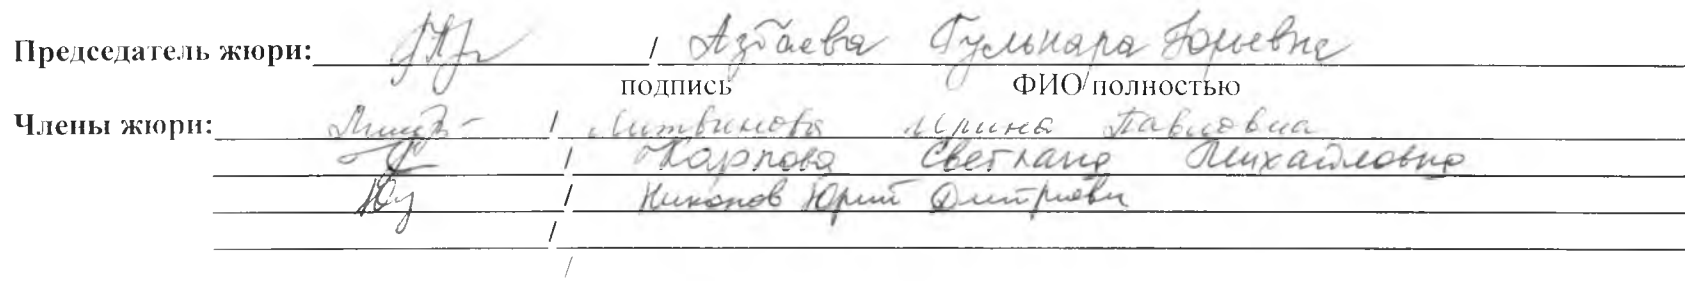 Председатель жюри: / Азбаева Гульнара Юрьевна
подпись ФИО/полностью
Члены жюри: / Литвинова Ирина Павловна
/ Карпова Светлана Михайловна
/ Никонов Юрий Дмитриевич
/
/